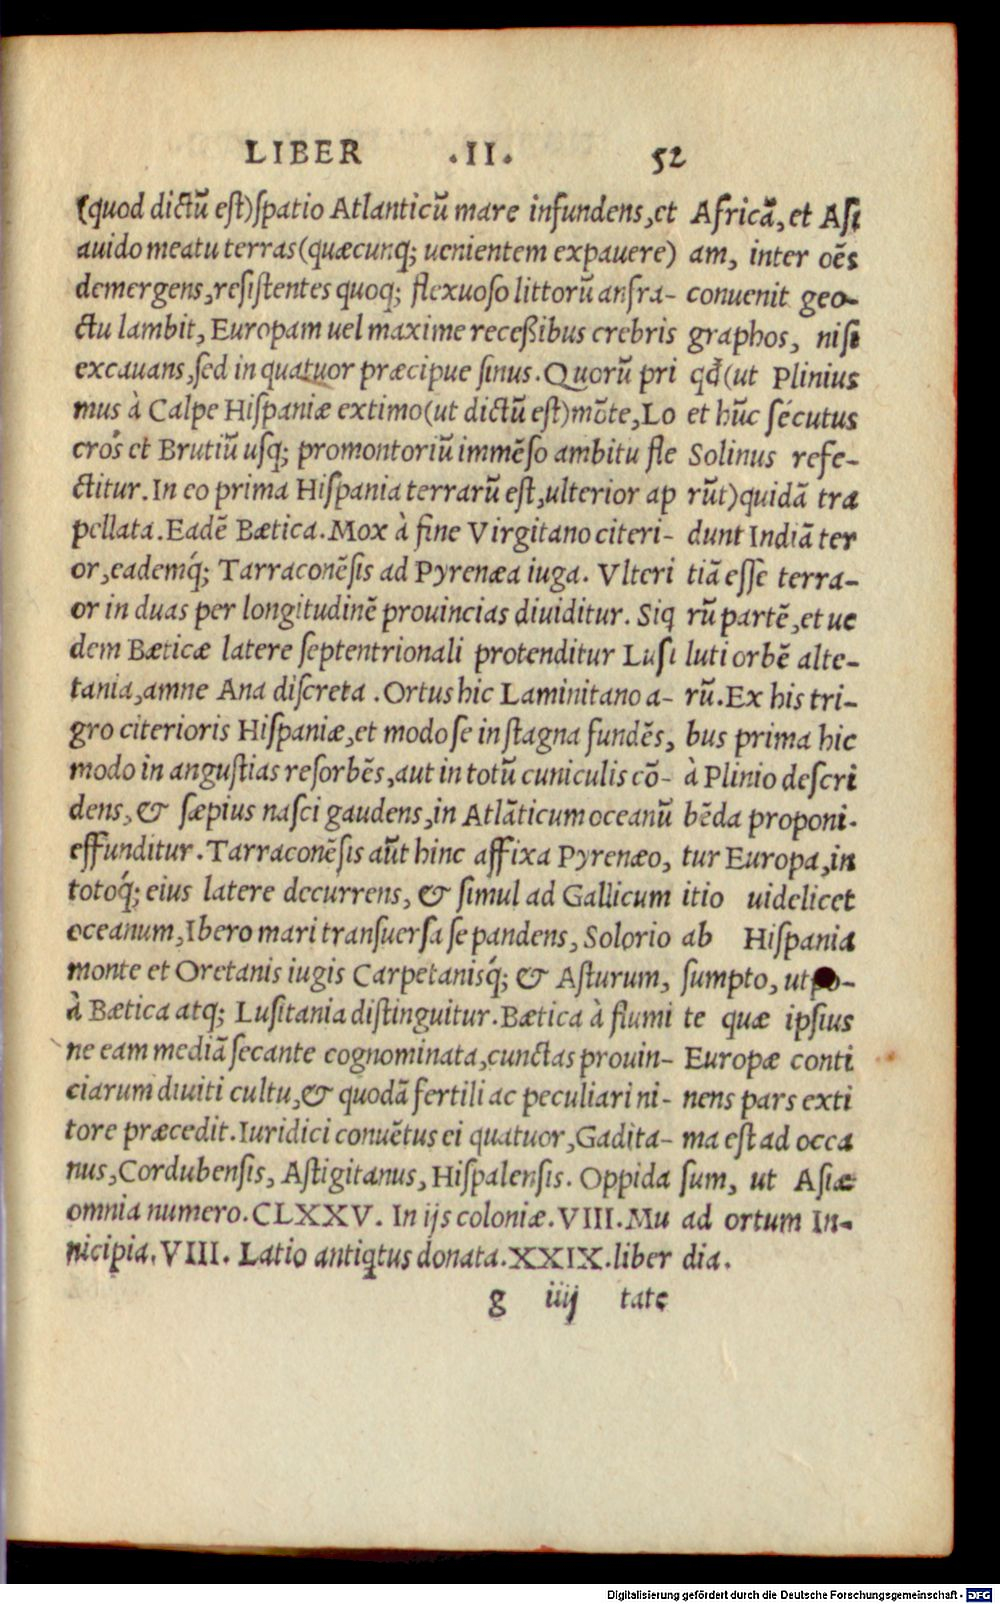 LIBER .II. 52
(quod dictū est)spatio Atlanticū mare infundens,et
auido meatu terras(quæcunq; uenientem expauere)
demergens,resistentes quoq; flexuoso littorū anfra-
ctu lambit, Europam uel maxime receßibus crebris
excauans,sed in quatuor præcipue sinus.Quorū pri
mus à Calpe Hispaniæ extimo(ut dictū est)mōte,Lo
cros et Brutiū usq; promontoriū immēso ambitu fle
ctitur.In eo prima Hispania terrarū est,ulterior ap
pellata.Eadē Bætica.Mox à fine Virgitano citeri-
or,eademq́; Tarraconēsis ad Pyrenæa iuga. Vlteri
or in duas per longitudinē prouincias diuiditur. Siq
dem Bæticæ latere septentrionali protenditur Lusi
tania,amne Ana discreta .Ortus hic Laminitano a-
gro citerioris Hispaniæ,et modo se in stagna fundēs,
modo in angustias resorbēs,aut in totū cuniculis cō-
dens,& sæpius nasci gaudens,in Atlāticum oceanū
effunditur.Tarraconēsis aūt hinc affixa Pyrenæo,
totoq́; eius latere decurrens, & simul ad Gallicum
oceanum,Ibero mari transuersa se pandens, Solorio
monte et Oretanis iugis Carpetanisq́; & Asturum,
à Bætica atq; Lusitania distinguitur.Bætica à flumi
ne eam mediā secante cognominata,cunctas prouin-
ciarum diuiti cultu,& quodā fertili ac peculiari ni-
tore præcedit.Iuridici conuētus ei quatuor,Gadita-
nus,Cordubensis, Astigitanus, Hispalensis. Oppida
omnia numero.CLXXV. In ijs coloniæ.VIII.Mu
nicipia.VIII. Latio antiqtus donata.XXIX.liber
g iiij tate
Africā, et Asi
am, inter oēs
conuenit geo-
graphos, nisi
qđ(ut Plinius
et hūc sécutus
Solinus refe-
rūt)quidā tra
dunt Indiā ter
tiā esse terra-
rū partē,et ue
luti orbē alte-
rū.Ex his tri-
bus prima hic
à Plinio descri
bēda proponi-
tur Europa,in
itio uidelicet
ab Hispania
sumpto, ut po-
te quæ ipsius
Europæ conti
nens pars exti
ma est ad occa
sum, ut Asiæ
ad ortum In-
dia.
Digitalisierung gefördert durch die Deutsche Forschungsgemeinschaft - DFG